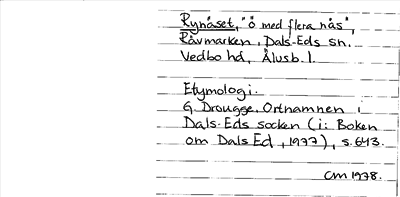 Rynåset, "ö med flera nås",
Råvmarken, Dals-Eds sn.
Vedbo hd, Älvsb. l.
Etymologi.
G. Drougge, Ortnamnen i
Dals-Eds socken (i: Boken
om Dals Ed, 1977), s. 643.
CM 1978.